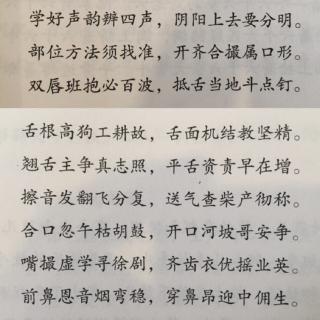 学好声韵辨四声，阴阳上去要分明。
部位方法须找准，开齐合撮属口形。
双唇班抱必百波，抵舌当地斗点钉。
舌根高狗工耕故，舌面机结教坚精。
翘舌主争真志照，平舌资责早在增。
擦音发翻飞分复，送气查柴产彻称。
合口忽午枯胡鼓，开口河坡哥安争。
嘴撮虚学寻徐剧，齐齿衣优摇业英。
前鼻恩音烟弯稳，穿鼻昂迎中佣生。